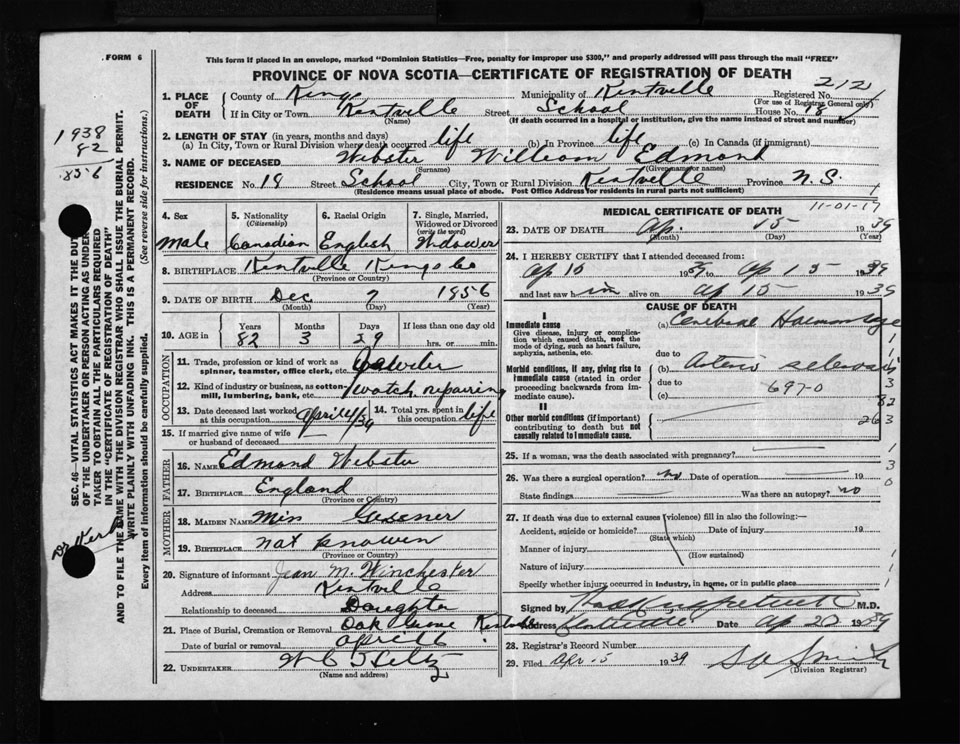 FORM 6
This form if placed in an envelope, marked "Dominion Statistics—Free, penalty for improper use $300," and properly addressed will pass through the mail "FREE"
PROVINCE OF NOVA SCOTIA—CERTIFICATE OF REGISTRATION OF DEATH
212
1. PLACE OF DEATH
County of Kings Municipality of Kentville Registered No.
(For use of Registrar General only)
If in City or Town Kentville Street School House No. 18
(Name) (If death occurred in a hospital or institution, give the name instead of street and number)
2. LENGTH OF STAY (in years, months and days)
(a) In City, Town or Rural Division where death occurred life (b) In Province life (c) In Canada (if immigrant)
3. NAME OF DECEASED Webster William Edmond
(Surname) (Given name or names)
RESIDENCE No. 18 Street School City, Town or Rural Division Kentville Province N.S.
(Residence means usual place of abode. Post Office Address for residents in rural parts not sufficient)
4. Sex Male
5. Nationality (Citizenship) Canadian
6. Racial Origin English
7. Single, Married, Widowed or Divorced (write the word) Widower
8. BIRTHPLACE Kentville Kings Co
(Province or Country)
9. DATE OF BIRTH Dec 7 1856
(Month) (Day) (Year)
10. AGE in Years 82 Months 3 Days 29 If less than one day hrs. or min.
OCCUPATION
11. Trade, profession or kind of work as spinner, teamster, office clerk, etc.
12. Kind of industry or business, as cotton-mill, lumbering, bank, etc. watch repairing
13. Date deceased last worked at this occupation April
14. Total yrs. spent in this occupation life
15. If married give name of wife or husband of deceased
FATHER
16. NAME Edmond Webster
17. BIRTHPLACE England
(Province or Country)
MOTHER
18. MAIDEN NAME Miss Gesener
19. BIRTHPLACE not known
(Province or Country)
20. Signature of informant Jean M. Winchester
Address Kentville
Relationship to deceased Daughter
21. Place of Burial, Cremation or Removal Oak Grove Kentville
Date of burial or removal April
22. UNDERTAKER
(Name and address)
MEDICAL CERTIFICATE OF DEATH
11-01-17
23. DATE OF DEATH Ap. 15 1939
(Month) (Day) (Year)
24. I HEREBY CERTIFY that I attended deceased from:
Ap 15 1939 to Ap 15 1939
and last saw him alive on Ap 15 1939
CAUSE OF DEATH
I
Immediate cause
Give disease, injury or complication which caused death, not the mode of dying, such as heart failure, asphyxia, asthenia, etc.
(a) Cerebral Haemorrhage
due to
Morbid conditions, if any, giving rise to immediate cause (stated in order proceeding backwards from immediate cause).
(b) Arterio sclerosis
due to 697-0
(c)
II
Other morbid conditions (if important) contributing to death but not causally related to immediate cause.
82
263
25. If a woman, was the death associated with pregnancy?
26. Was there a surgical operation? no Date of operation 19
State findings Was there an autopsy? no
27. If death was due to external causes (violence) fill in also the following:—
Accident, suicide or homicide? Date of injury 19
(State which)
Manner of injury
(How sustained)
Nature of injury
Specify whether injury occurred in industry, in home, or in public place
Signed by M.D.
Address Kentville Date Ap 20 1939
28. Registrar's Record Number
29. Filed Apr. 1939
(Division Registrar)
1938
82
1856
SEC. 46—VITAL STATISTICS ACT MAKES IT THE DUTY OF THE UNDERTAKER OR PERSON ACTING AS UNDERTAKER TO OBTAIN ALL THE PARTICULARS REQUIRED IN THE "CERTIFICATE OF REGISTRATION OF DEATH" AND TO FILE THE SAME WITH THE DIVISION REGISTRAR WHO SHALL ISSUE THE BURIAL PERMIT.
WRITE PLAINLY WITH UNFADING INK. THIS IS A PERMANENT RECORD.
Every item of information should be carefully supplied. (See reverse side for instructions.)